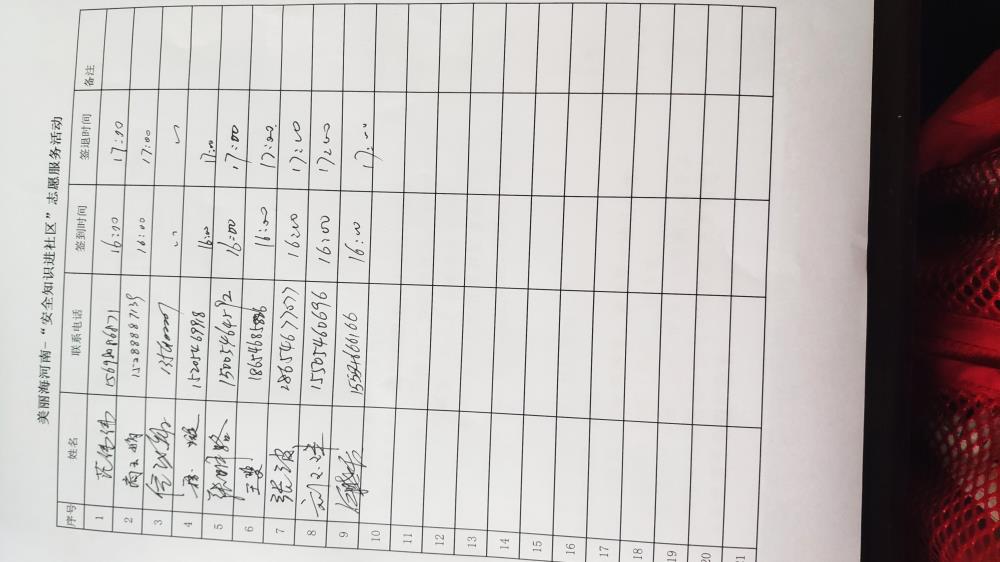 美丽海河南-“安全知识进社区”志愿服务活动
序号 姓名 联系电话 签到时间 签退时间 备注
1 范伟伟 16:00 17:00
2 15288887139 16:00 17:00
3
4 16:00 17:00
5 张明路 15005464592 16:00 17:00
6 王斐 16:00 17:00
7 张波 18654677077 16:00 17:00
8 15505460696 16:00 17:00
9 16:00 17:00
10
11
12
13
14
15
16
17
18
19
20
21